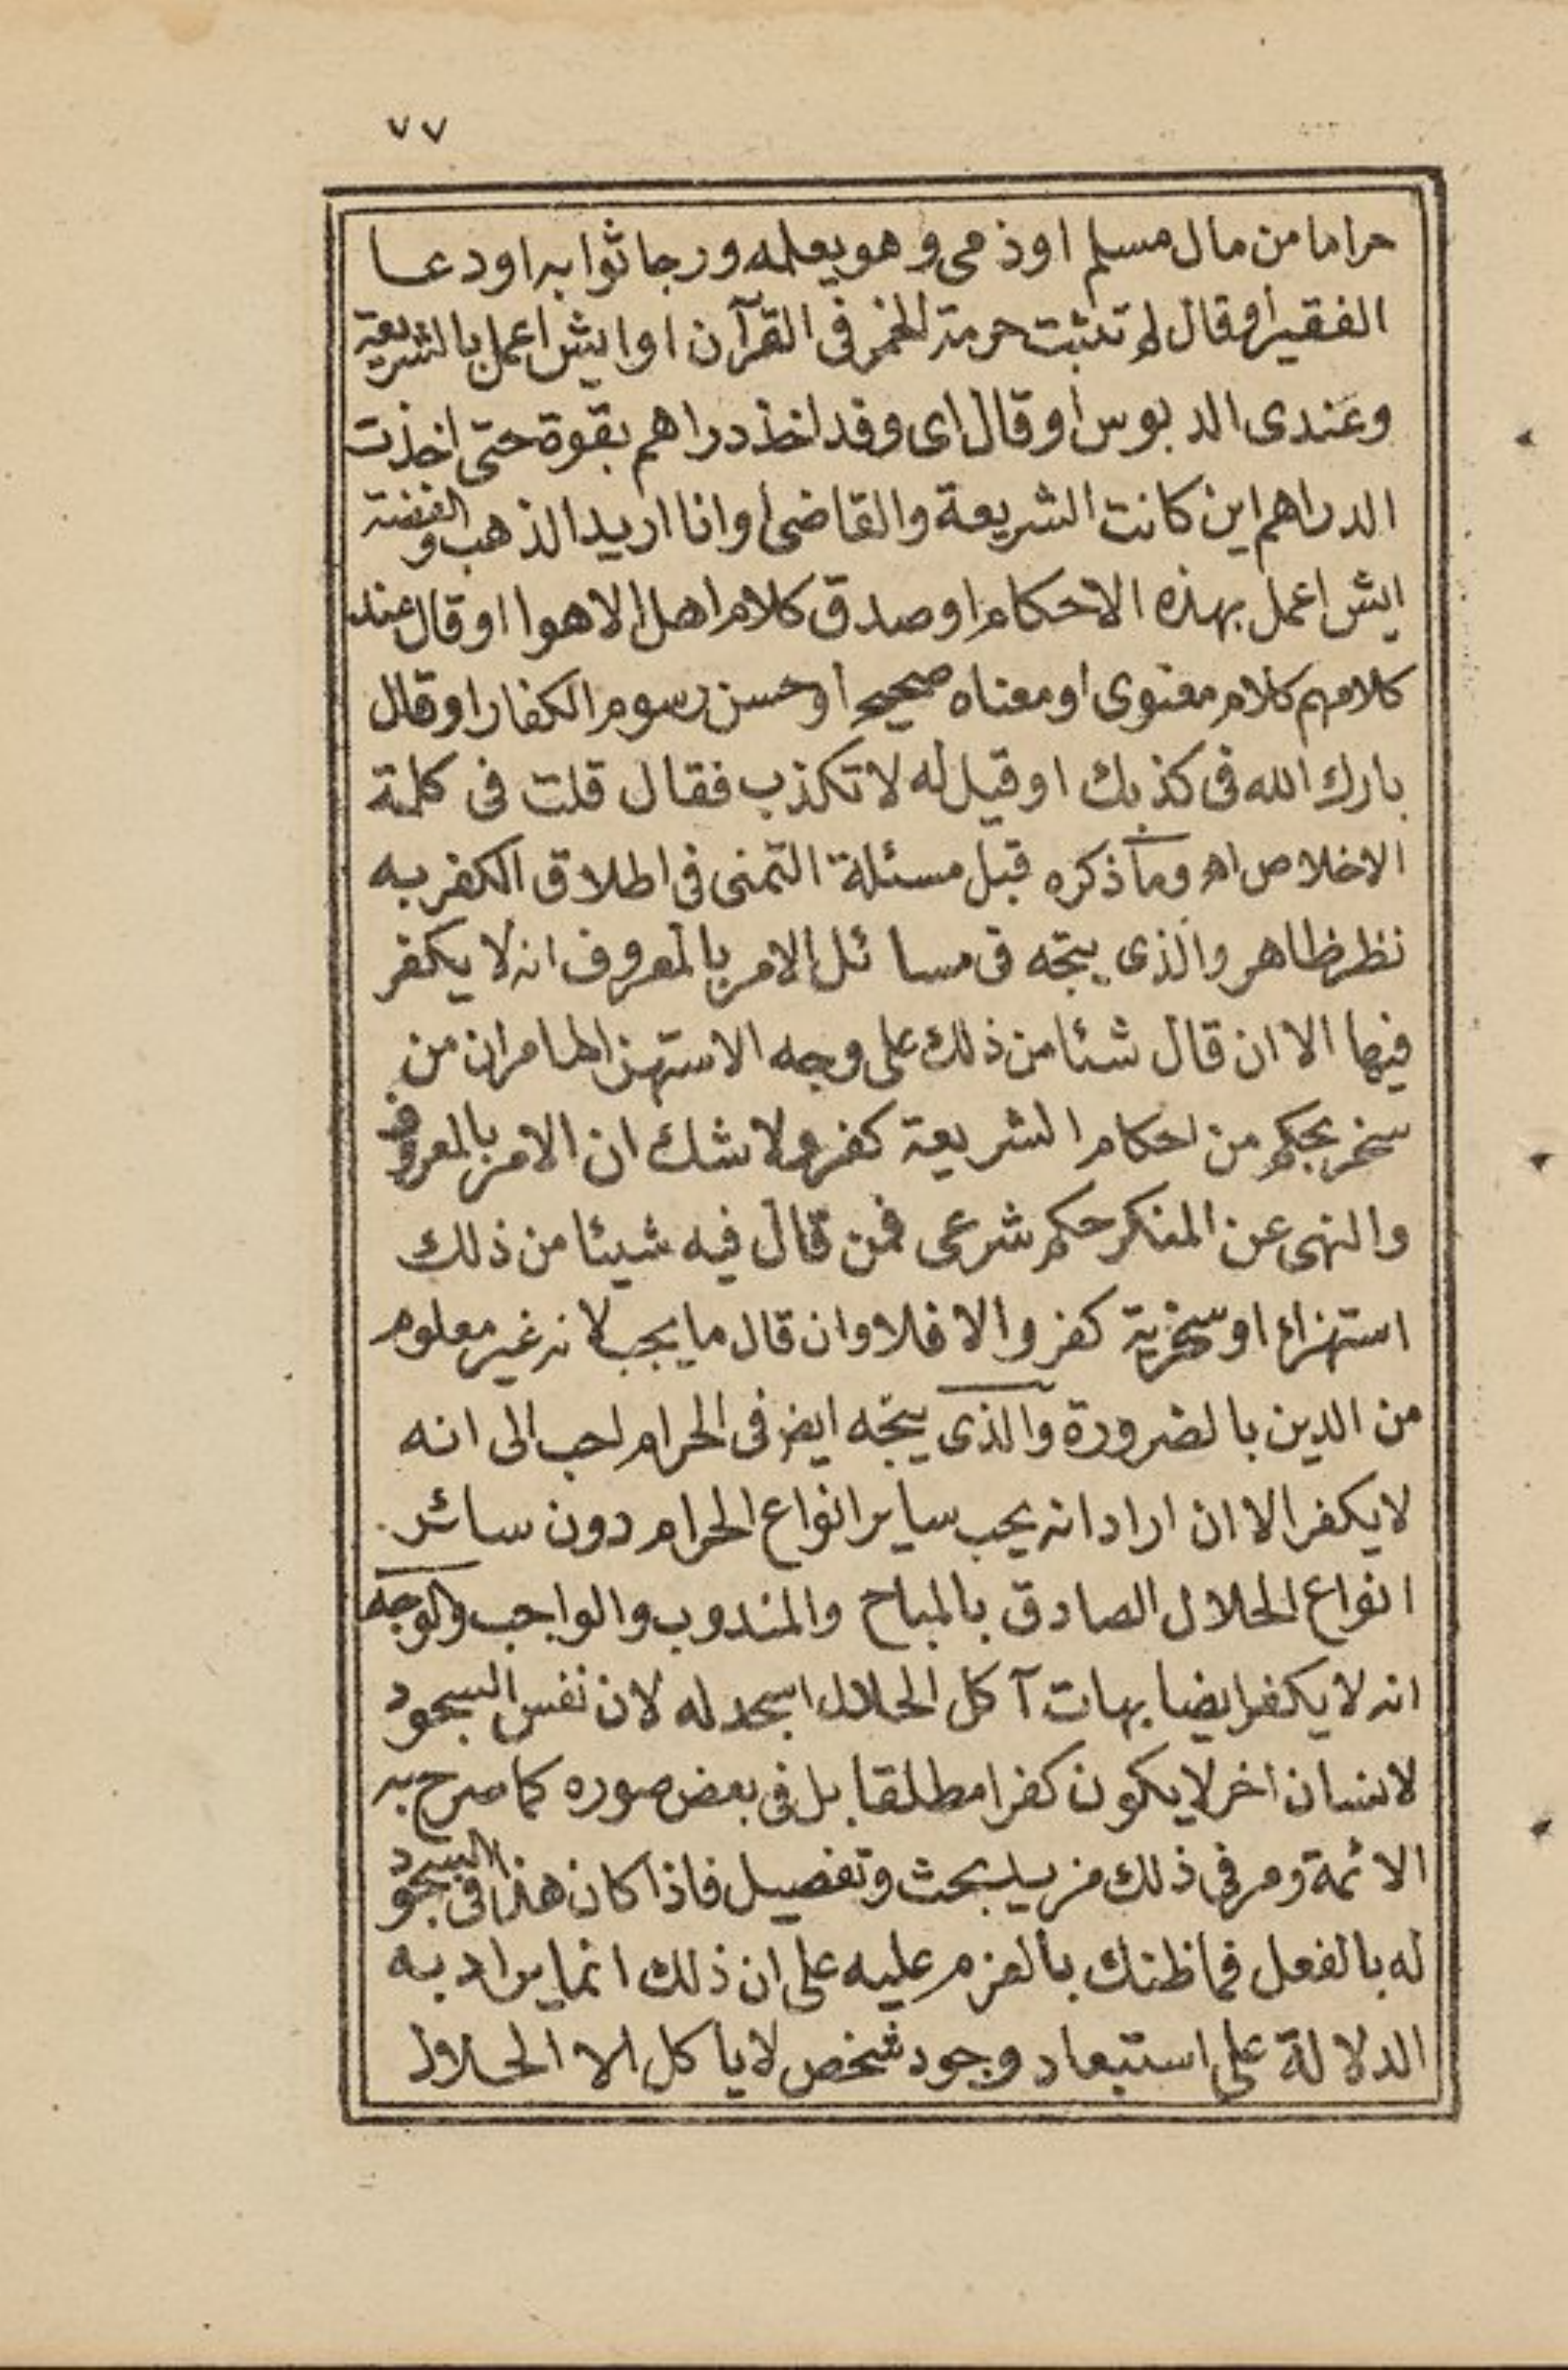 ٧٧
حراما من مال مسلم اوذمى وهو يعلمه ورجا ثوابه اودعا
الفقير اوقال لم تثبت حرمة الخمر فى القرآن اوايش اعمل بالشريعة
وعندى الدبوس اوقال اى وقد اخذ دراهم بقوة حتى اخذت
الدراهم اين كانت الشريعة والقاضى اوانا اريد الذهب والفضة
ايش اعمل بهذه الاحكام اوصدق كلام اهل الاهوا اوقال عند
كلامهم كلام معنوى اومعناه صحيح اوحسن رسوم الكفار اوقال
بارك الله فى كذبك اوقيل له لا تكذب فقال قلت فى كلمة
الاخلاص اهـ وما ذكره قبل مسئلة التمنى فى اطلاق الكفر به
نظر ظاهر والذى يتجه فى مسائل الامر بالمعروف انه لا يكفر
فيها الا ان قال شئا من ذلك على وجه الاستهزا لما مر ان من
سخر بحكم من احكام الشريعة كفر ولا شك ان الامر بالمعروف
والنهى عن المنكر حكم شرعى فمن قال فيه شيئا من ذلك
استهزاء اوسخرية كفر والا فلا وان قال ما يجب لانه غير معلوم
من الدين بالضرورة والذى يتجه ايض فى الحرام احب الى انه
لا يكفر الا ان اراد انه يحب ساير انواع الحرام دون سائر
انواع الحلال الصادق بالمباح والمندوب والواجب والوجه
انه لا يكفر ايضا بهات آكل الحلال اسجد له لان نفس السجود
لانسان اخر لا يكون كفرا مطلقا بل فى بعض صوره كما صرح به
الائمة ومر فى ذلك مزيد بحث وتفصيل فاذا كان هذا فى السجود
له بالفعل فما ظنك بالعزم عليه على ان ذلك انما يراد به
الدلالة على استبعاد وجود شخص لا ياكل الا الحلال